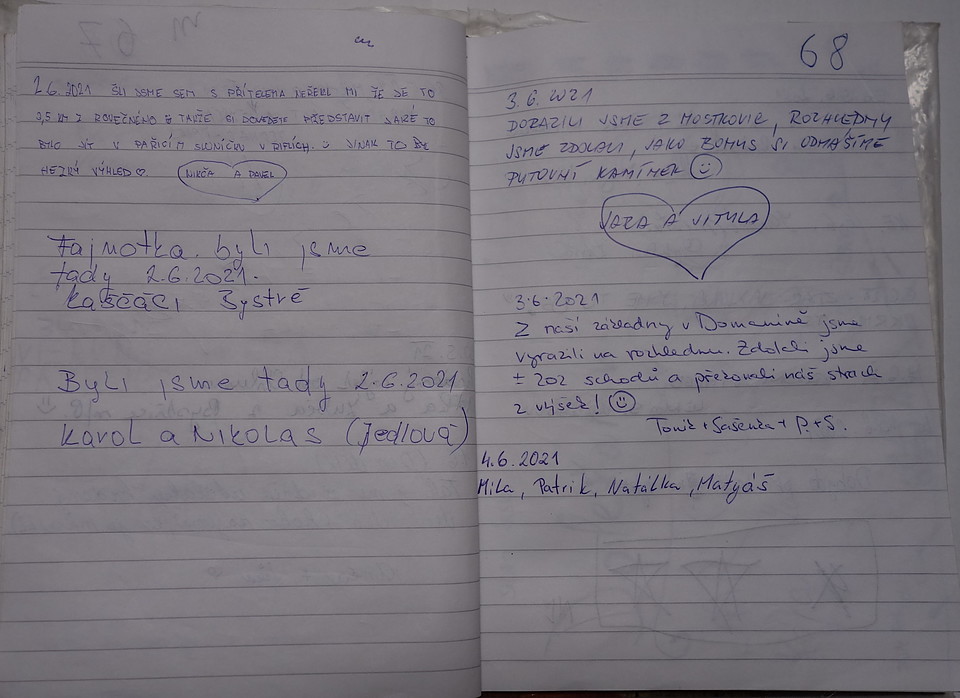 2.6.2021 ŠLI JSME SEM S PŘÍTELEM A NEŘEKL MI ŽE JE TO
3,5 KM Z ROVEČNÉHO TAKŽE SI DOVEDETE PŘEDSTAVIT JAKÉ TO
BYLO JÍT V PAŘÍCÍM SLUNÍČKU V RIFLÍCH. JINAK TO BYL
HEZKÝ VÝHLED ♡ NIKČA A PAVEL
Fajnotka. byli jsme
tady 2.6.2021.
Kaščáci Bystré
Byli jsme tady 2.6.2021
Karol a Nikolas (Jedlová)
68
3.6.2021
DORAZILI JSME Z HOSTKOVIC, ROZHLEDNU
JSME ZDOLALI, JAKO BONUS SI ODNÁŠÍME
PUTOVNÍ KAMÍNEK ☺
A JITULA
3.6.2021
Z naší základny v Domaníně jsme
vyrazili na rozhlednu. Zdolali jsme
± 202 schodů a překovali náš strach
z výšek! ☺
Toník + Sašenka + P. + S.
4.6.2021
Míla, Patrik, Natálka, Matyáš